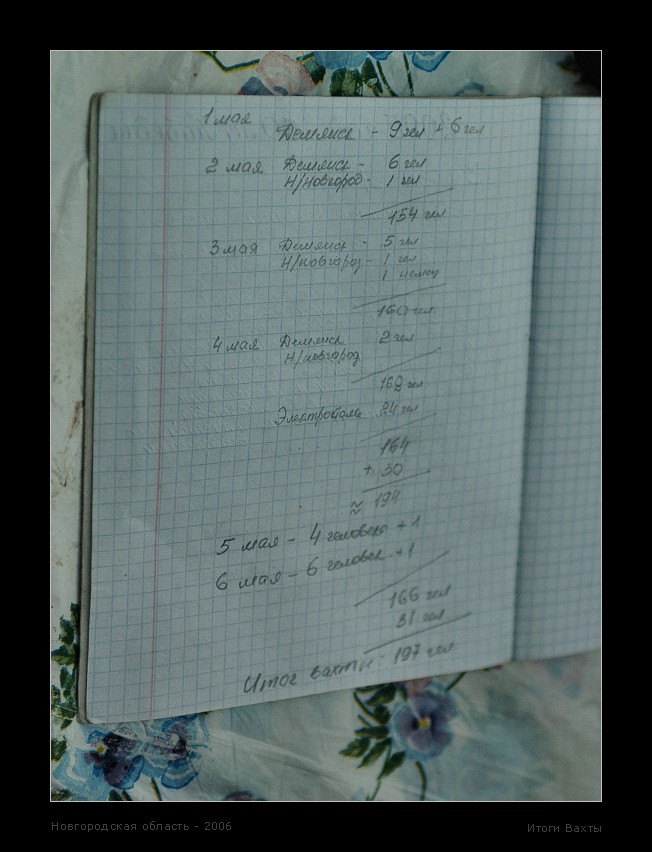 1 мая
Демянск - 9 чел + 6 чел
2 мая Демянск - 6 чел
Н/Новгород - 1 чел
154 чел
3 мая Демянск - 5 чел
Н/Новгород - 1 чел
1 немец
160 чел
4 мая Демянск 2 чел
Н/новгород
162 чел
24 чел
164
+ 30
≈ 194
5 мая - 4 человека + 1
6 мая - 6 человек + 1
166 чел
31 чел
Итог вахты: 197 чел
Новгородская область - 2006
Итоги Вахты